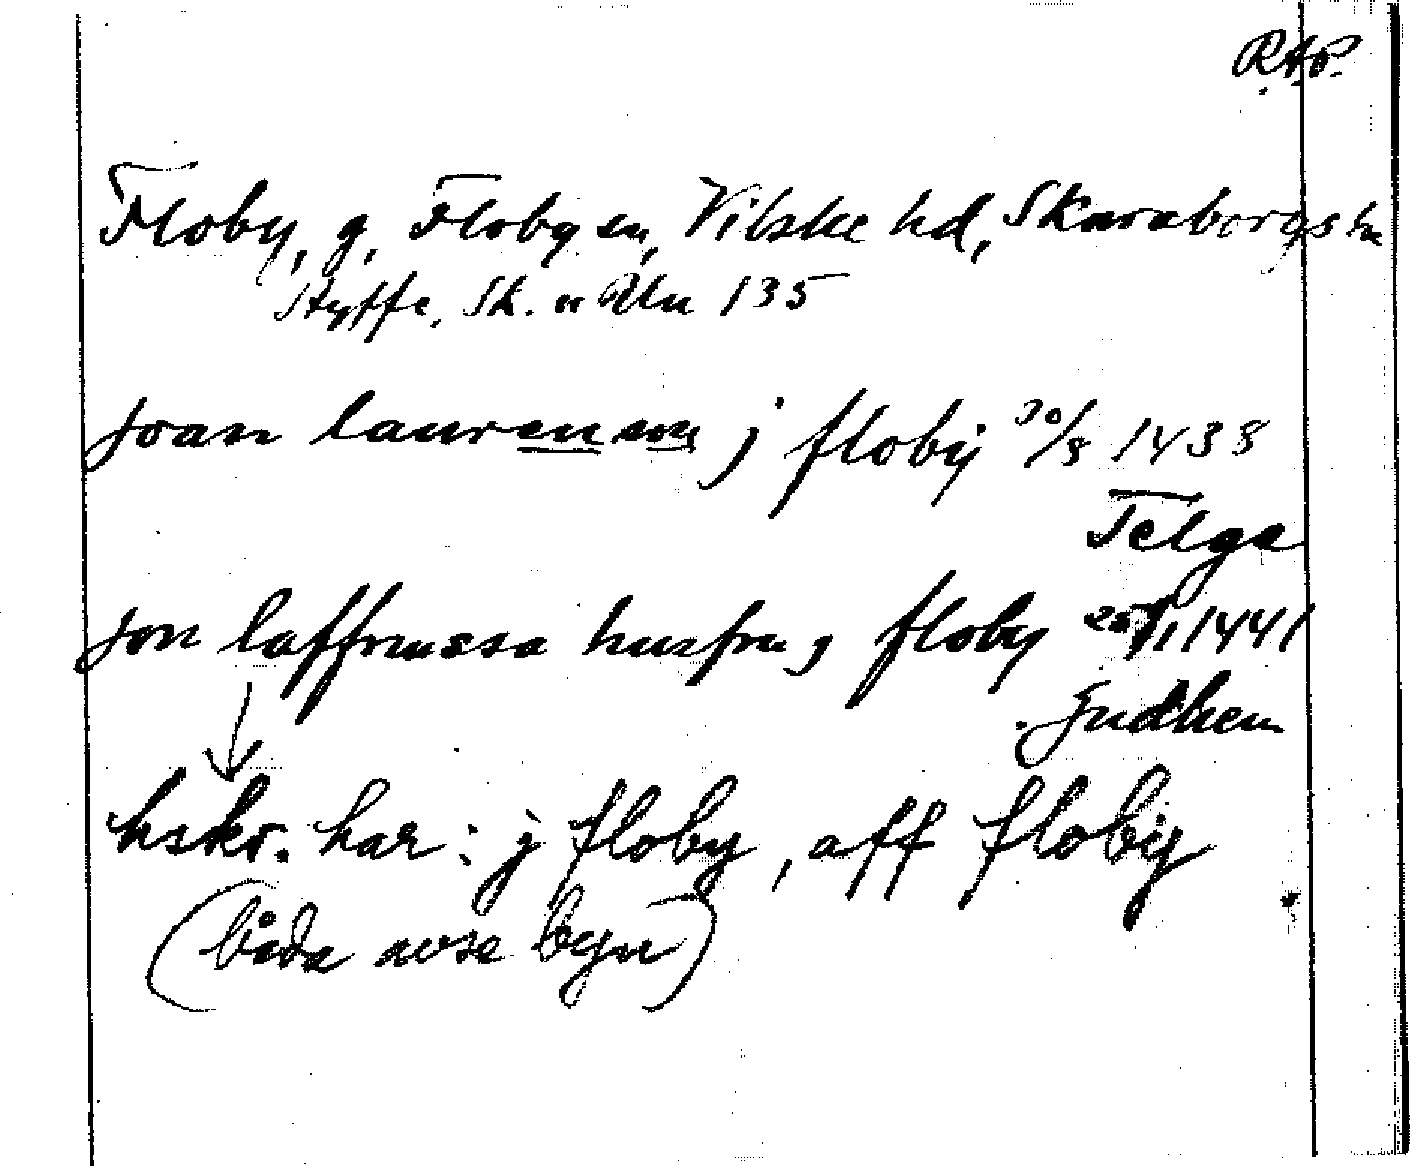 RAP.
Floby, g, Floby sn, Vilske hd, Skaraborgs l
Styffe, Sk. u Un 135
joan laurenssn j flobij 30/8 1438
Telga
jon laffrenssa husfru j floby 1441
Gudhem
hskr. har: j floby, aff flobij
(båda avse byn)